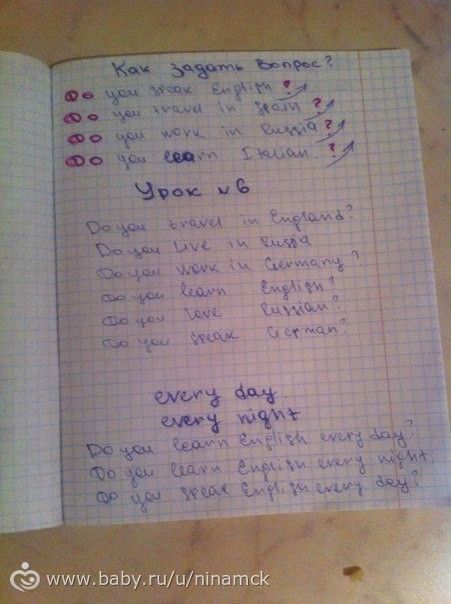 Как задать вопрос?
Do you speak English?
Do you travel in Spain?
Do you work in Russia?
Do you learn Italian?
Урок №6
Do you travel in England?
Do you live in Russia
Do you work in Germany?
Do you learn English?
Do you love Russian?
Do you speak German?
every day
every night
Do you learn English every day?
Do you learn English every night.
Do you speak English every day?
www.baby.ru/u/ninamck